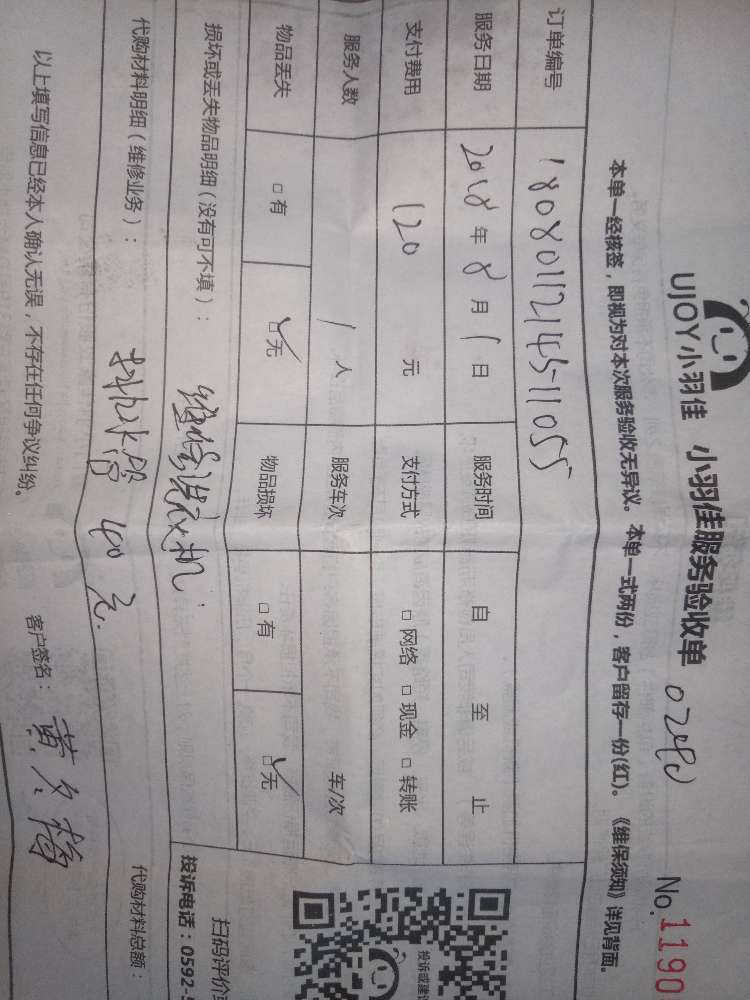 UJOY小羽佳 小羽佳服务验收单 0240 No.1190
本单一经核签，即视为对本次服务验收无异议。本单一式两份，客户留存一份(红)。《维保须知》详见背面。
订单编号 1808011214511055
服务日期 2018年8月1日 服务时间 自 至 止
支付费用 120元 支付方式 □网络 □现金 □转账
服务人数 1人 服务车次 车/次
物品丢失 □有 ☑无 物品损坏 □有 ☑无
损坏或丢失物品明细（没有可不填）： 维修洗衣机.
扫码评价
投诉电话：0592-5
投诉或建议
代购材料明细（维修业务）： 排水管 40元. 代购材料总额：
以上填写信息已经本人确认无误，不存在任何争议纠纷。 客户签名：黄冬梅